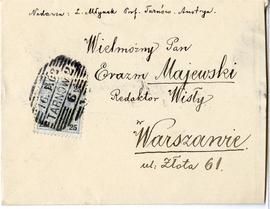 Nadawca: L. Młynek Prof. Tarnów. Austrya.
Wielmożny Pan
Erazm Majewski
Redaktor Wisły
w
Warszawie
ul: Złota 61.
TARNÓW
25